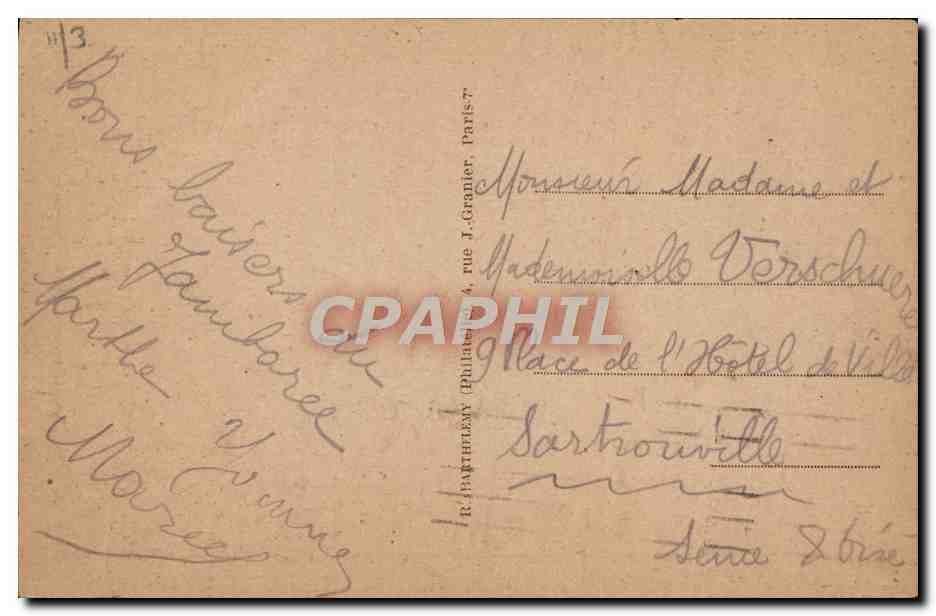 3
Bons baisers du
Jamboree
Marthe Yvonne
Marcel
R. BARTHELEMY (Philatelie), 4, rue J.-Granier, Paris-7e
CPAPHIL
Monsieur Madame et
Mademoiselle Verschuere
9 Place de l'Hôtel de Ville
Sartrouville
Seine & Oise